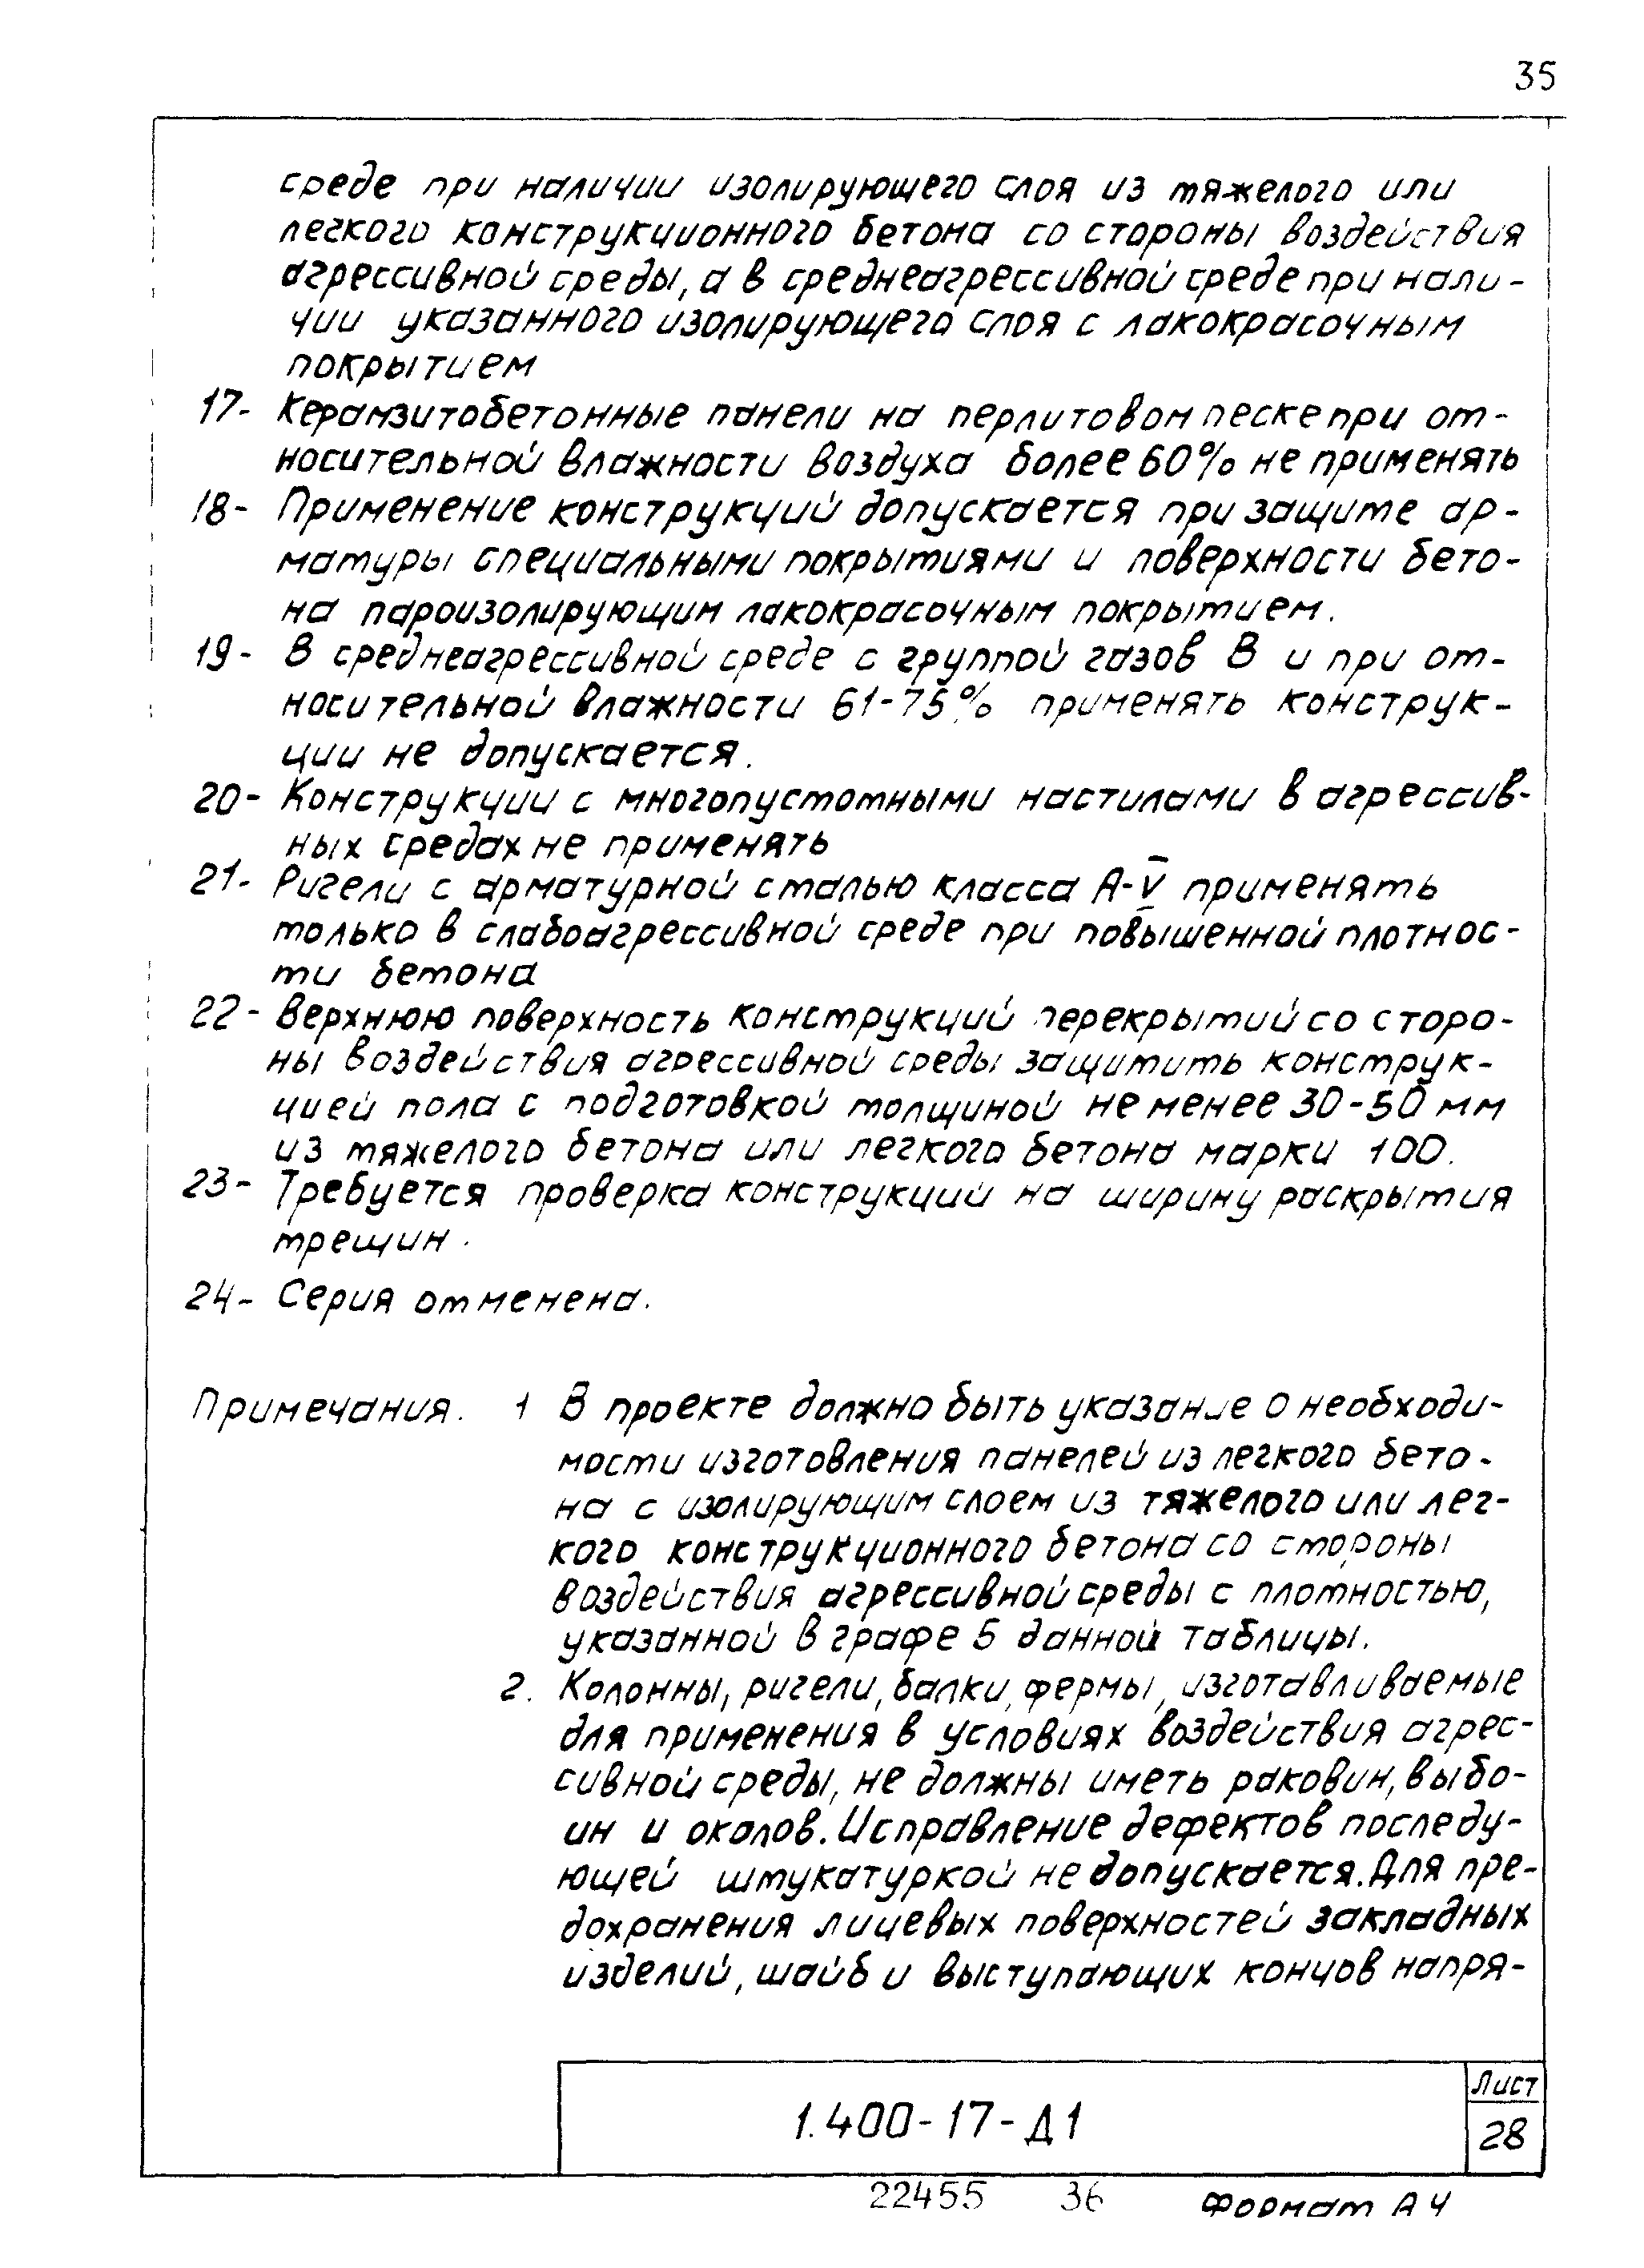 35
среде при наличии изолирующего слоя из тяжелого или
легкого конструкционного бетона со стороны воздействия
агрессивной среды, а в среднеагрессивной среде при нали-
чии указанного изолирующего слоя с лакокрасочным
покрытием
17- Керамзитобетонные панели на перлитовом песке при от-
носительной влажности воздуха более 60% не применять
18- Применение конструкций допускается при защите ар-
матуры специальными покрытиями и поверхности бето-
на пароизолирующим лакокрасочным покрытием.
19- В среднеагрессивной среде с группой газов В и при от-
носительной влажности 61-75% применять конструк-
ции не допускается.
20- Конструкции с многопустотными настилами в агрессив-
ных средах не применять
21- Ригели с арматурной сталью класса А-V применять
только в слабоагрессивной среде при повышенной плотнос-
ти бетона
22- Верхнюю поверхность конструкций перекрытий со сторо-
ны воздействия агрессивной среды защитить конструк-
цией пола с подготовкой толщиной не менее 30-50 мм
из тяжелого бетона или легкого бетона марки 100.
23- Требуется проверка конструкций на ширину раскрытия
трещин.
24- Серия отменена.
Примечания. 1 В проекте должно быть указание о необходи-
мости изготовления панелей из легкого бето-
на с изолирующим слоем из тяжелого или лег-
кого конструкционного бетона со стороны
воздействия агрессивной среды с плотностью,
указанной в графе 5 данной таблицы.
2. Колонны, ригели, балки, фермы, изготавливаемые
для применения в условиях воздействия агрес-
сивной среды, не должны иметь раковин, выбо-
ин и околов. Исправление дефектов последу-
ющей штукатуркой не допускается. Для пре-
дохранения лицевых поверхностей закладных
изделий, шайб и выступающих концов напря-
1.400-17-Д1
Лист
28
22455 36 Формат А4